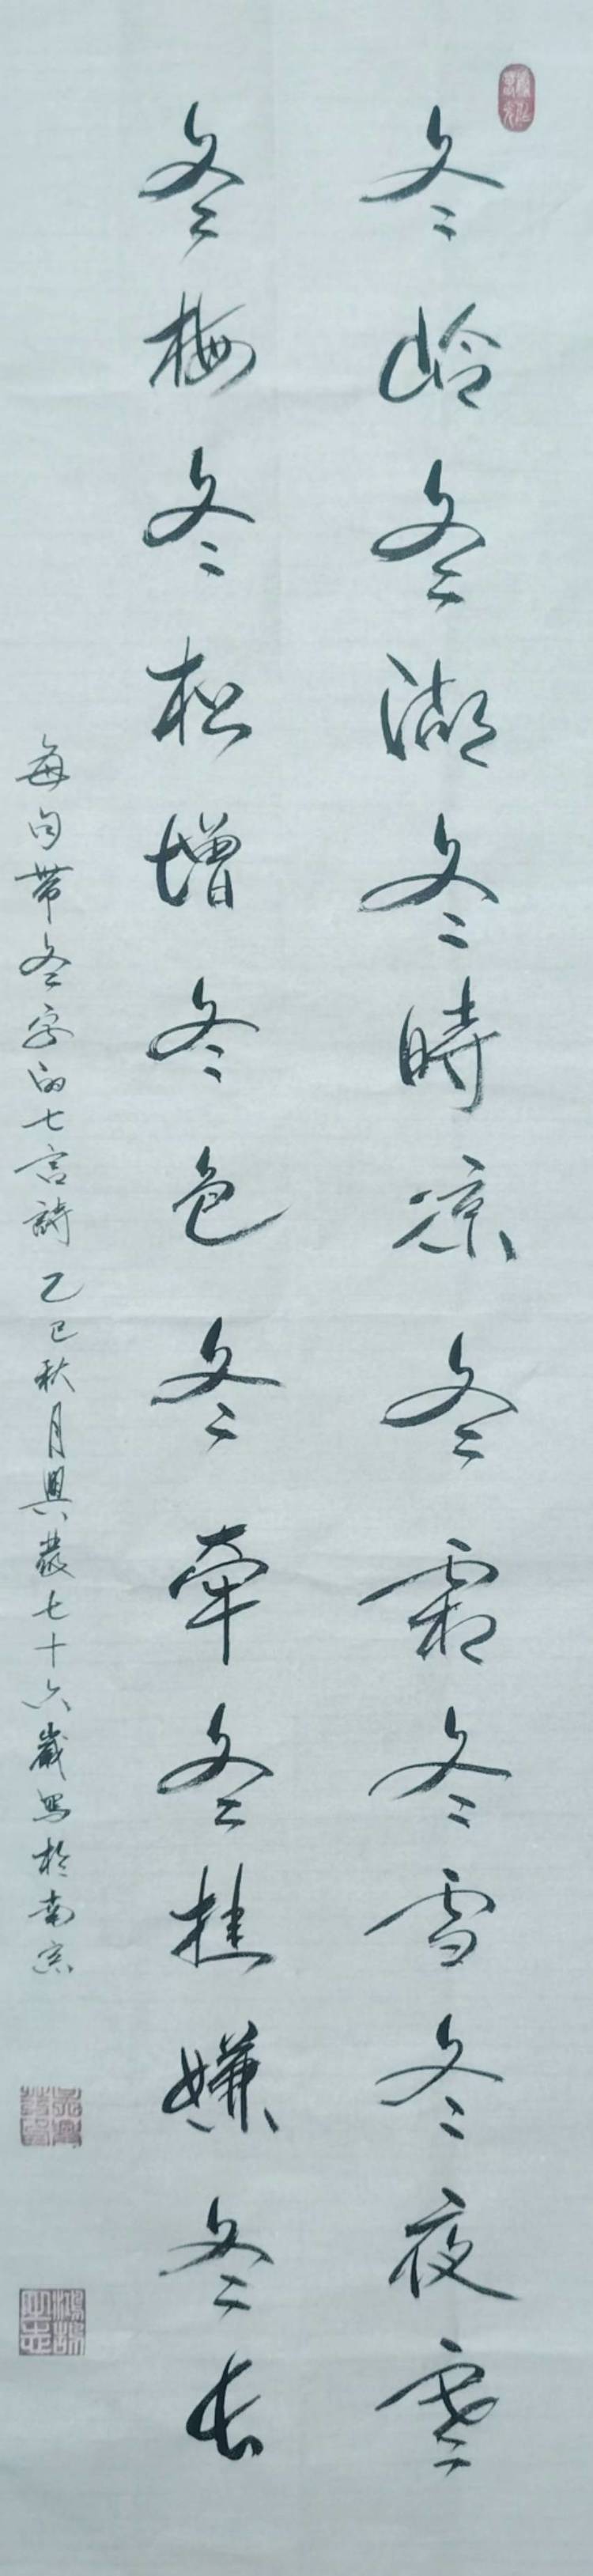 冬岭冬湖冬時凉冬霜冬雪冬夜寒
冬梅冬松增冬色冬牽冬挂嫌冬長
每句帶冬字的七言詩 乙巳秋月興發七十六歲寫於南京